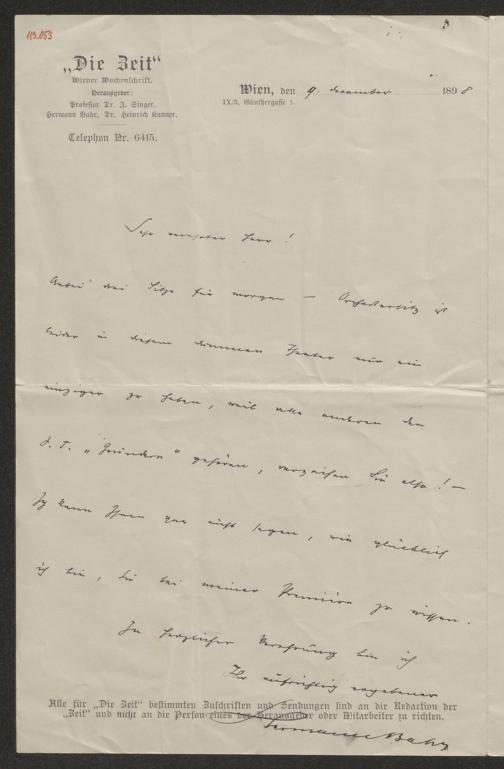 113.053
„Die Zeit“
Wiener Wochenschrift.
Herausgeber:
Professor Dr. J. Singer,
Hermann Bahr, Dr. Heinrich Kanner.
Telephon Nr. 6415.
Wien, den 9. December 1898
IX/3, Günthergasse 1.
Sehr verehrter Herr!
Anbei drei Sitze für morgen – Orchestersitz ist
leider in diesem dummen Theater nur ein
einziger zu haben, weil alle anderen den
s. T. „Gründern“ gehören, verzeihen Sie also! –
Ich kann Ihnen gar nicht sagen, wie glücklich
ich bin, Sie bei meiner Première zu wissen.
In herzlicher Verehrung bin ich
Ihr aufrichtig ergebener
Alle für „Die Zeit“ bestimmten Zuschriften und Sendungen sind an die Redaction der
„Zeit“ und nicht an die Person eines der Herausgeber oder Mitarbeiter zu richten.
Hermann Bahr